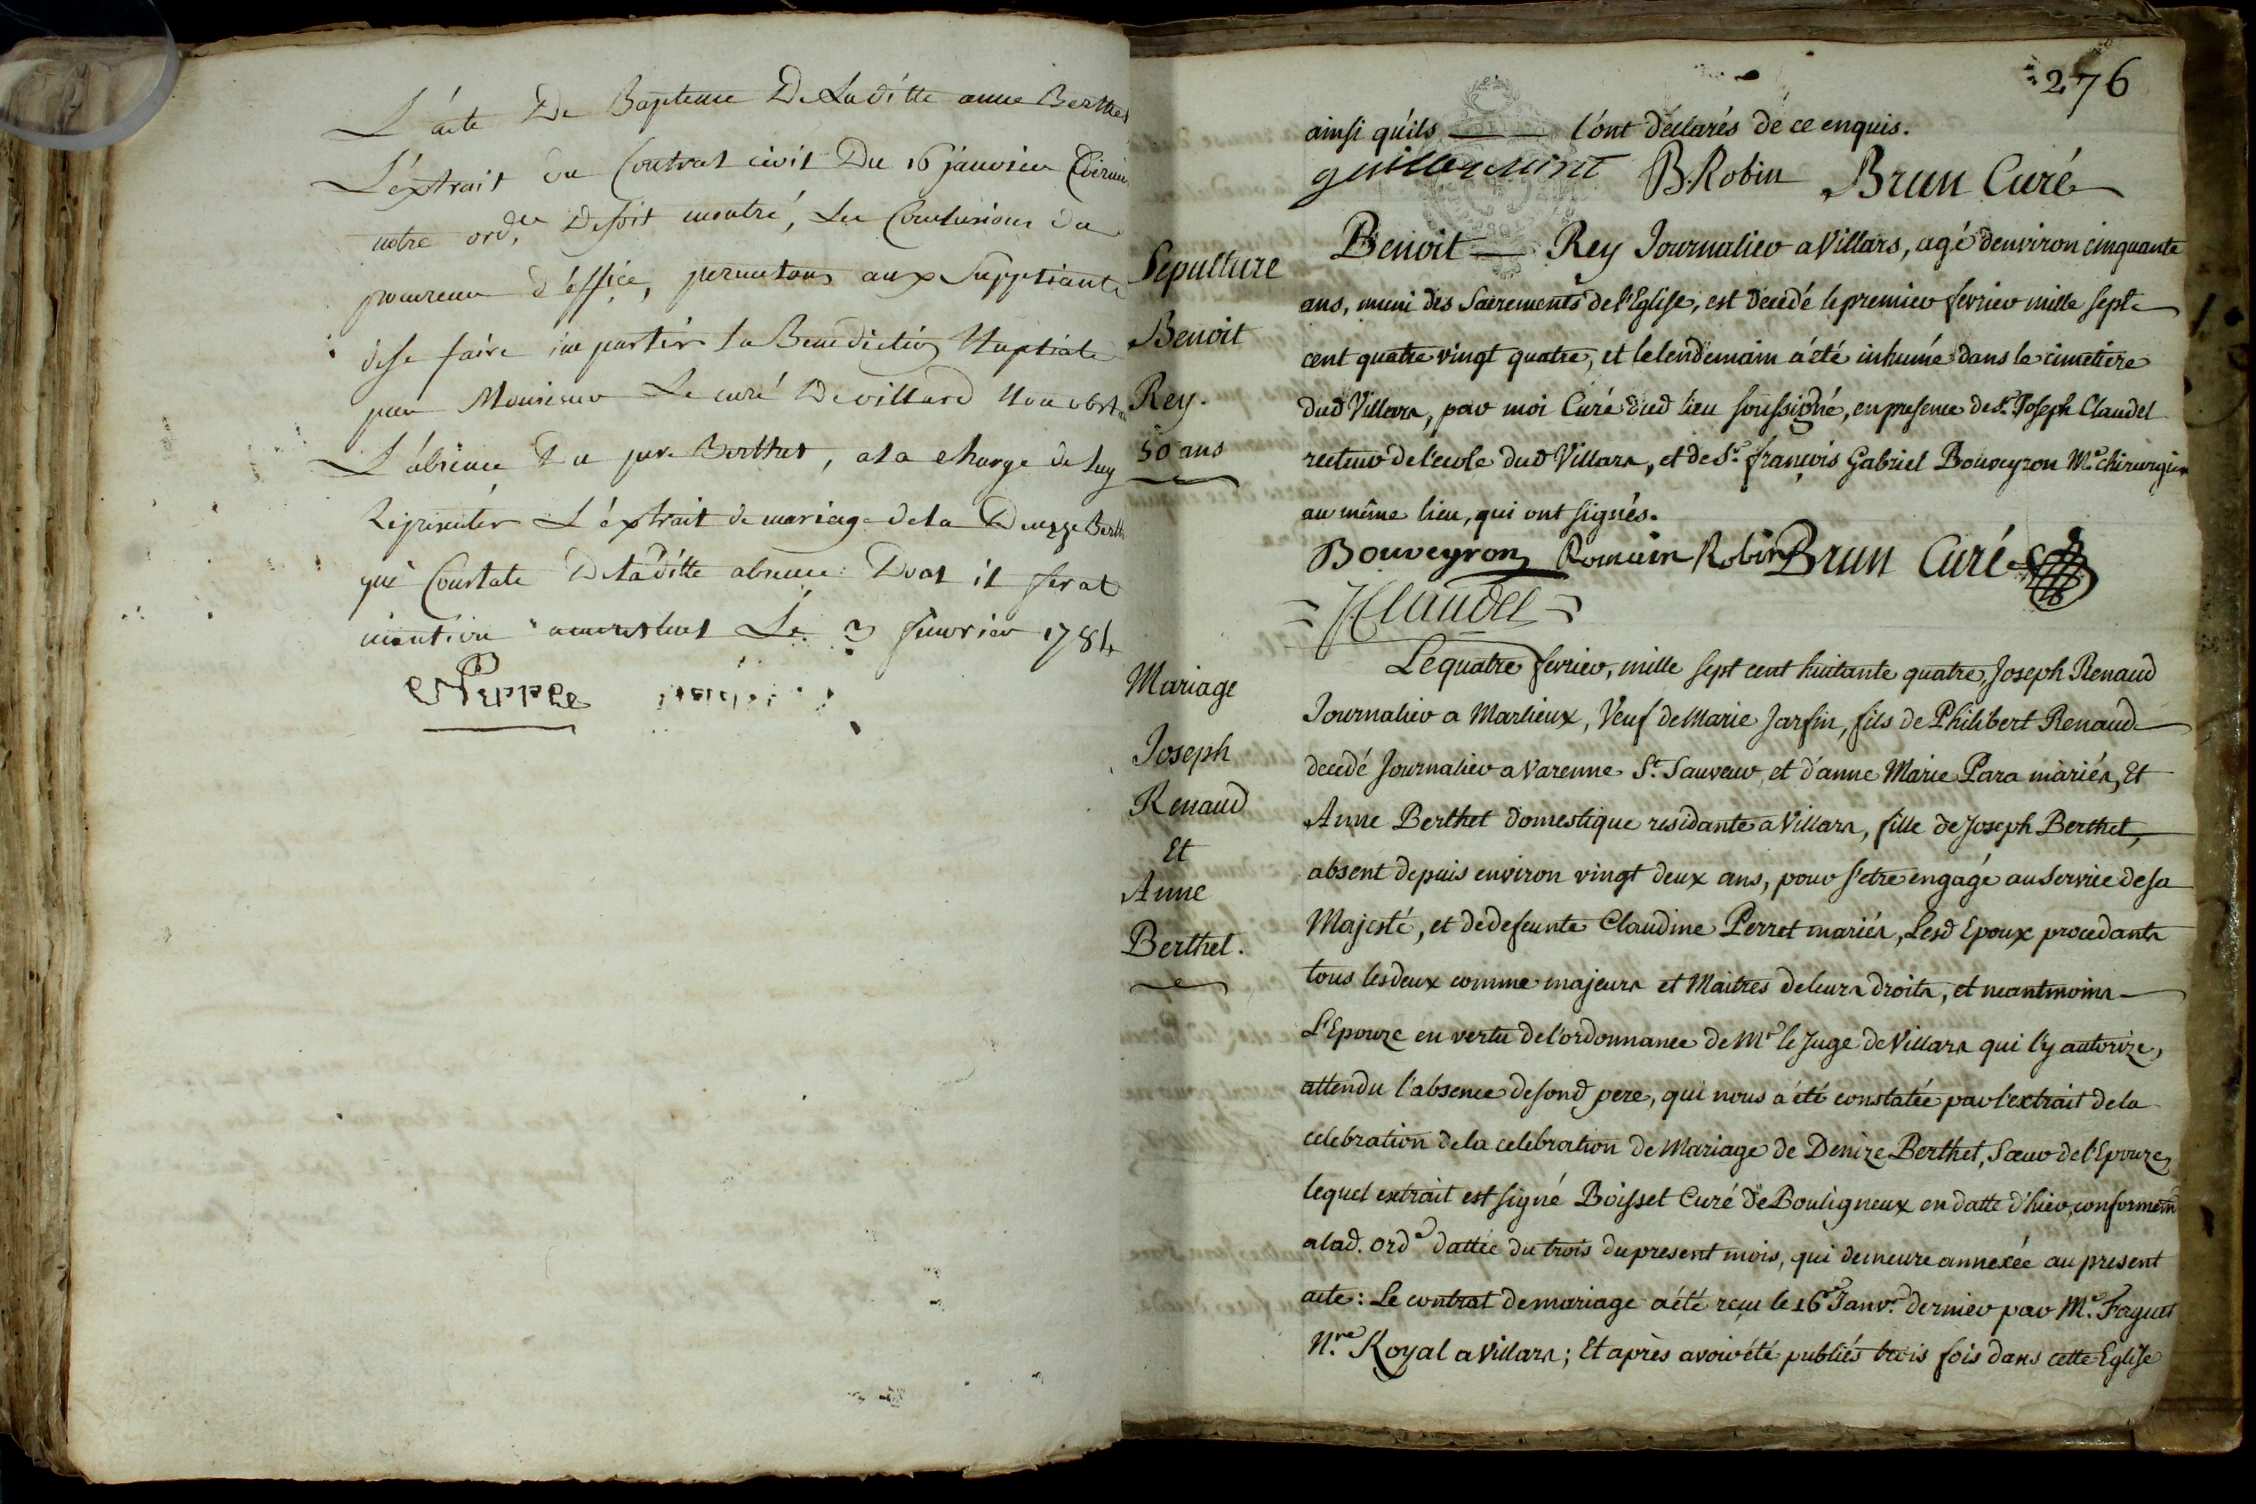 L'acte De Bapteme De Laditte anne Berthet
L'extrait du Contrat civil Du 16 janvier Dernier
notre ord.ce De soit montré, Les Conclusions du
procureur d'office, permetons aux Suppliants
de se faire impartir la Benediction Nuptiale
par Monsieur Le curé De villard Nonobst
L'absence Du per Berthet, a la charge de luy
Representer L'extrait de mariage de la Denize Berth
qui Constate De laditte absence Dont il serat
mention Le 3 feuvrier 1784
276
ainsi qu'ils l'ont déclarés de ce enquis.
guillermint B. Robin Brun Curé
Sepulture
Benoit
Rey.
50 ans
Benoit Rey Journalier a Villars, agé d'environ cinquante
ans, muni des Sacrements de l'Eglise, est decedé le premier fevrier mille sept
cent quatre vingt quatre, et le lendemain a été inhumé dans le cimetiere
dud Villars, par moi Curé dud lieu soussigné, en presence de S.r Joseph Claudel
recteur de l'ecole dud Villars, et de S.r françois Gabriel Bouveyron M.e chirurgien
au même lieu, qui ont signés.
Bouveyron Romain Robin Brun Curé
J Claudel
Mariage
Joseph
Renaud
Et
Anne
Berthet.
Le quatre fevrier, mille sept cent huitante quatre, Joseph Renaud
Journalier a Marlieux, Veuf de Marie Jarfin, fils de Philibert Renaud
decedé Journalier a Varenne S.t Sauveur, et d'anne Marie Para mariés, Et
Anne Berthet domestique residante a Villars, fille de Joseph Berthet,
absent depuis environ vingt deux ans, pour s'etre engagé au Service de sa
Majesté, et de defeunte Claudine Perret mariés, Lesd Epoux procedants
tous les deux comme majeurs et Maitres de leurs droits, et neantmoins
L'Epouze en vertu de l'ordonnance de M.r le Juge de Villars qui l'y autorize,
attendu l'absence de sond pere, qui nous a été constatée par l'extrait de la
celebration de la celebration de Mariage de Denize Berthet, Sœur de l'Epouze,
lequel extrait est signé Boisset Curé de Bouligneux en datte d'hier, conformem.t
a lad. ord.e dattée du trois du present mois, qui demeure annexée au present
acte: Le contrat de mariage a été reçu le 16.e Janv.r dernier par M.e Faguet
N.re Royal a Villars; Et après avoir été publiés trois fois dans cette Eglise